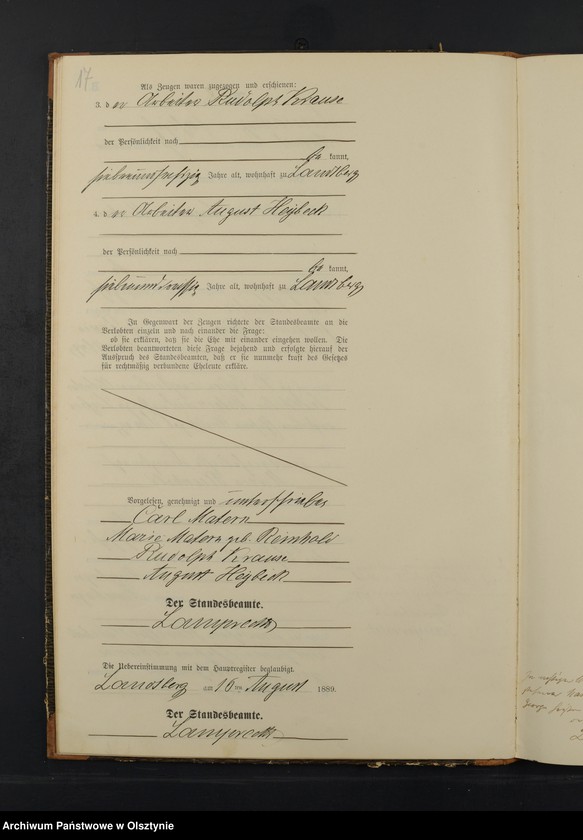 17
Als Zeugen waren zugezogen und erschienen:
3. der Arbeiter Rudolph Krause
der Persönlichkeit nach
be kannt,
Jahre alt, wohnhaft zu Landsberg
4. der Arbeiter August Heybeck
der Persönlichkeit nach
be kannt,
Jahre alt, wohnhaft zu Landsberg
In Gegenwart der Zeugen richtete der Standesbeamte an die
Verlobten einzeln und nach einander die Frage:
ob sie erklären, daß sie die Ehe mit einander eingehen wollen. Die
Verlobten beantworteten diese Frage bejahend und erfolgte hierauf der
Ausspruch des Standesbeamten, daß er sie nunmehr kraft des Gesetzes
für rechtmäßig verbundene Eheleute erkläre.
Vorgelesen, genehmigt und unterschrieben
Carl Matern
Marie Matern geb. Reinhold
Rudolph Krause
August Heybeck
Der Standesbeamte.
Lamprecht
Die Uebereinstimmung mit dem Hauptregister beglaubigt.
Landsberg am 16ten August 1889.
Der Standesbeamte.
Lamprecht
Archiwum Państwowe w Olsztynie